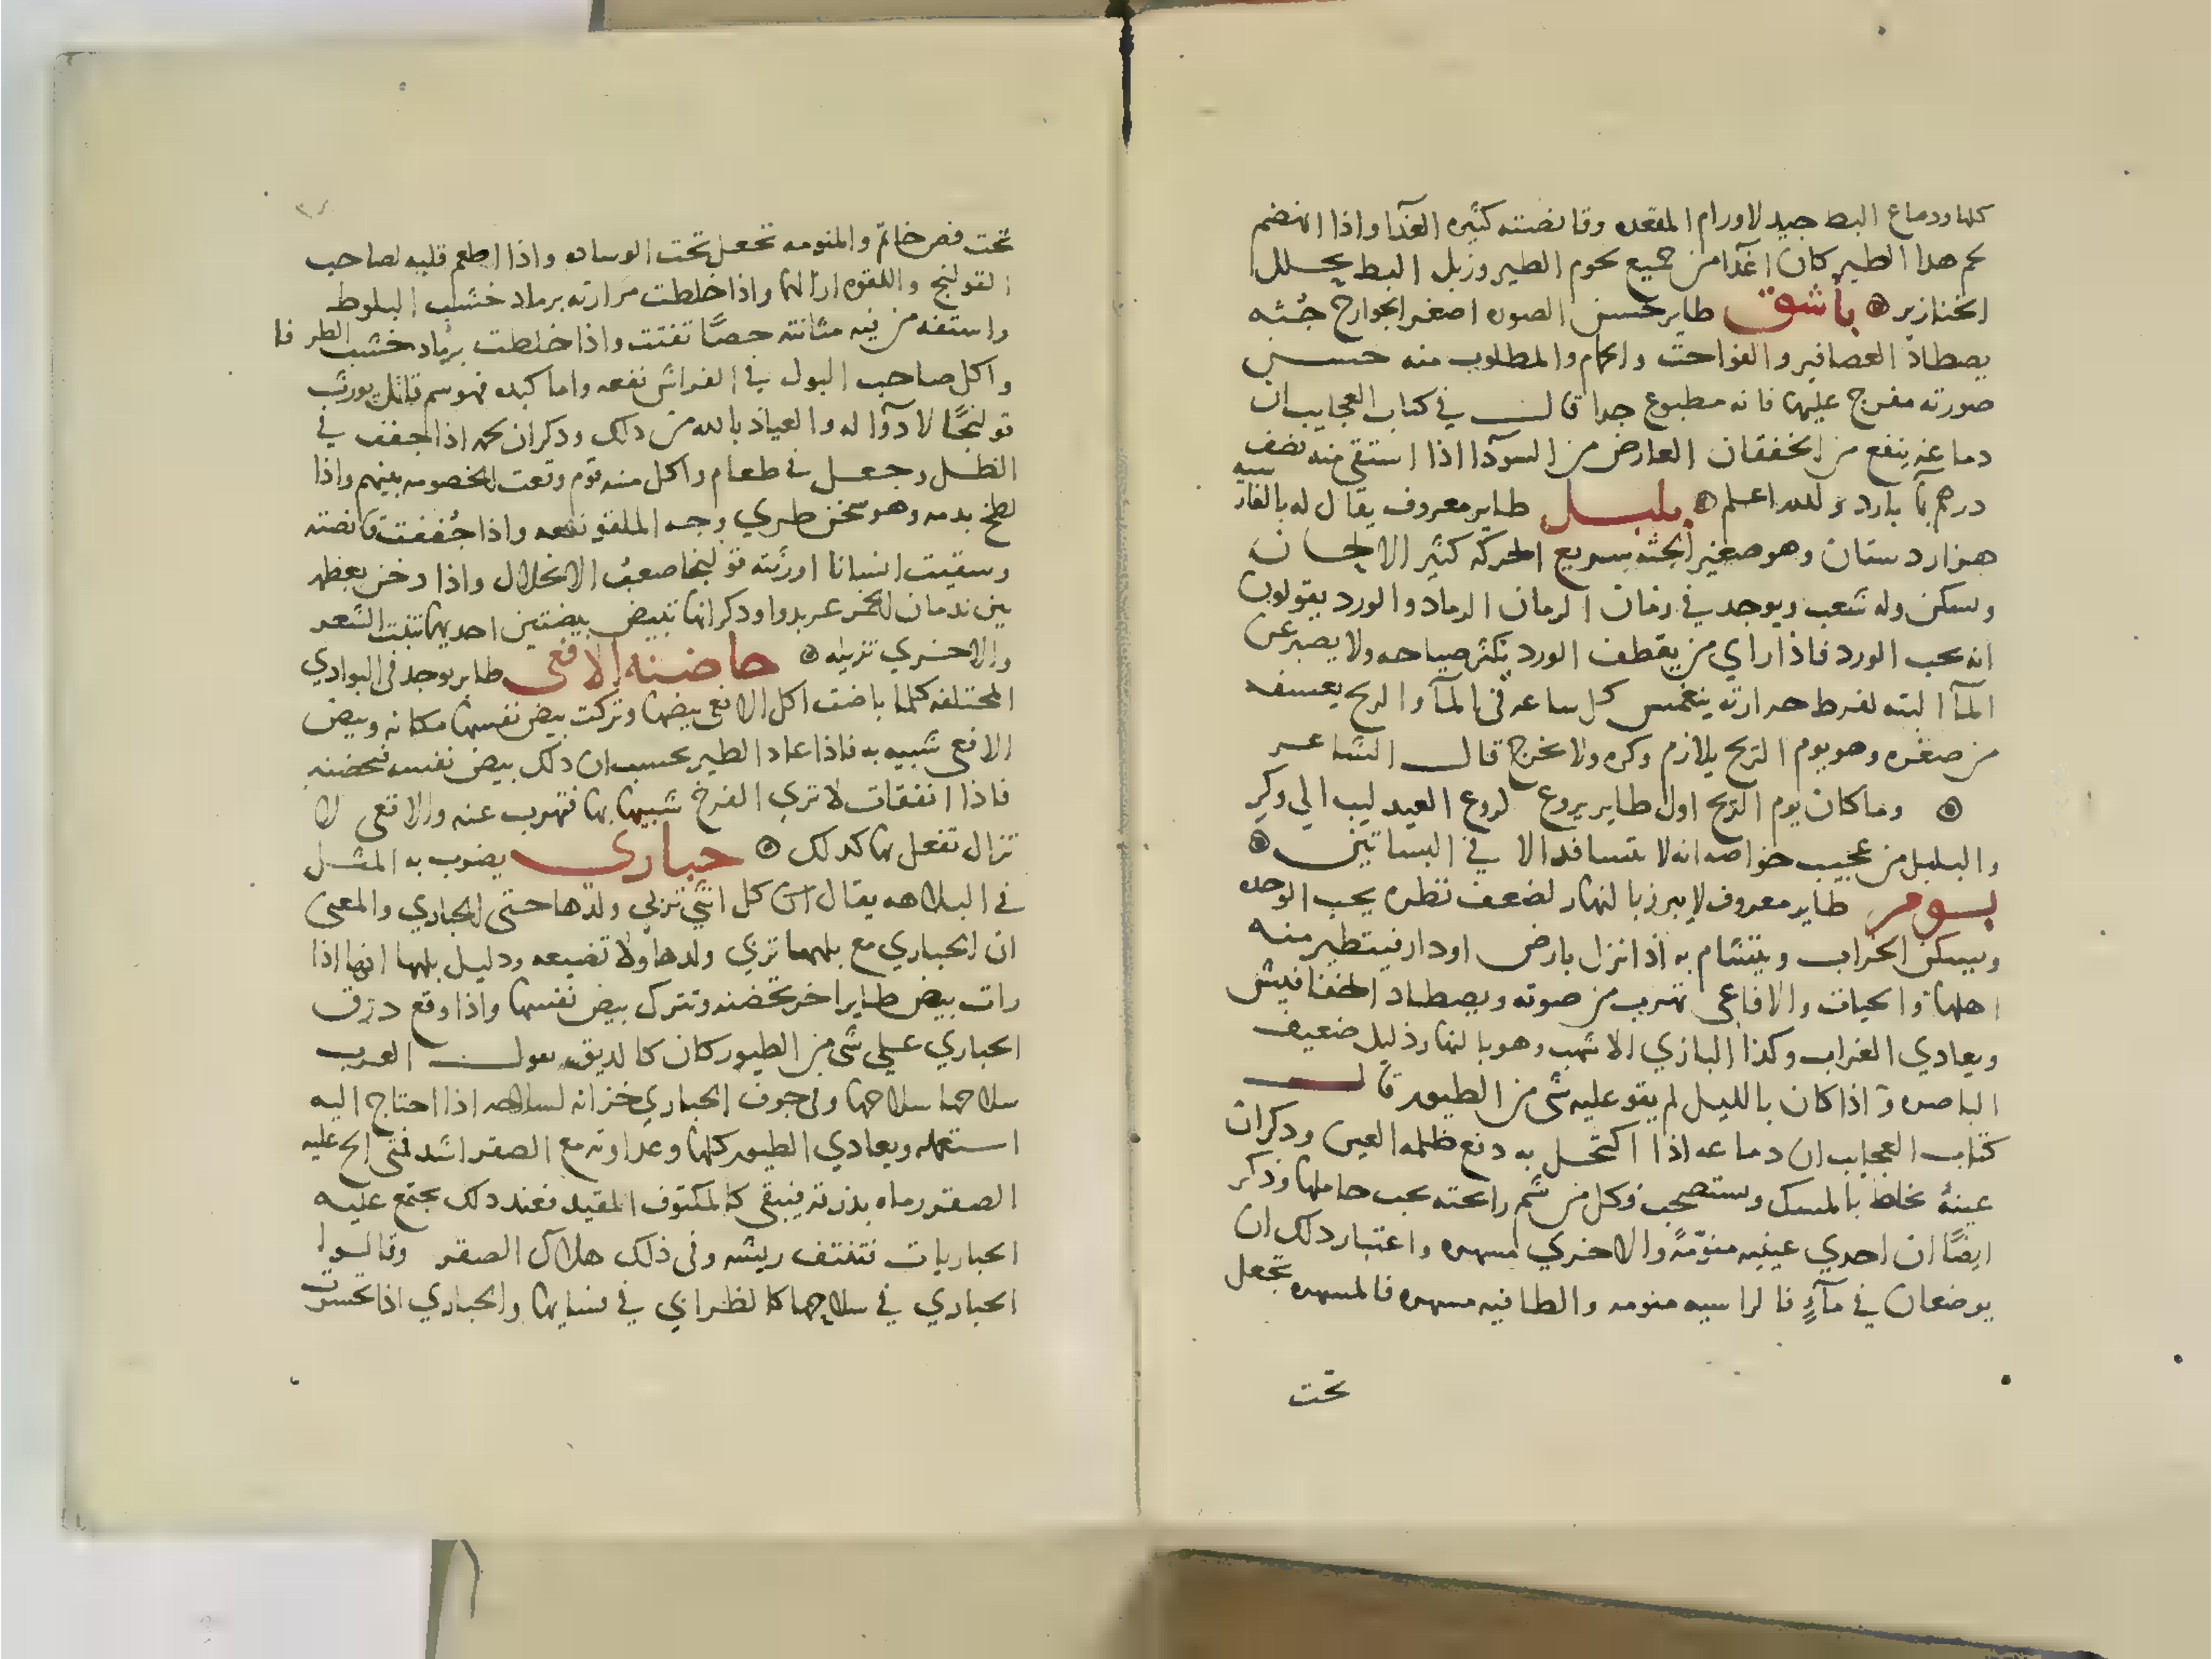 كلها ودماغ البط جيد لاورام المقعده وقانصته كثيره الغدآ واذا انهضم
لحم هدا الطير كان اغدا من جميع لحوم الطير وزبل البط يحلل
الخنازير ۞ باشق طاير حسن الصوره اصغر الجوارح جثه
يصطاد العصافير والفواخت والحمام والمطلوب منه حسن
صورته مفرج عليها فانه مطبوع جدا قال في كتاب العجايب ان
دماغه ينفع من الخفقان العارض من السودآ اذا استقى منه نصف
درهم بمآ بارد والله اعلم ۞ بلبل طاير معروف يقال له بالفارسيه
هزاردستان وهو صغير الجثه سريع الحركه كثير الالحان
ويسكن وله شعب ويوجد في زمان الرمان الرماد والورد يقولون
انه يحب الورد فاذا راي من يقطف الورد يكثر صياحه ولا يصبر عن
المآ البته لفرط حرارته ينغمس كل ساعه في المآ والريح يعسفه
من صغره وهو يوم الريح يلازم وكره ولا يخرج قال الشاعر
۞ وما كان يوم الريح اول طاير يروع كروع العيدليب الي وكر
والبلبل من عجيب خواصه انه لا يتسافد الا في البساتين ۞
بومر طاير معروف لا يبرز بالنهار لضعف نظره يحب الوحده
ويسكن الخراب ويتشام به اذا نزل بارض او دار فيتطير منه
اهلها والحيات والافاعي تهرب من صوته ويصطاد الخفافيش
ويعادي الغراب وكذا البازي الاشهب وهو بالنهار ذليل ضعيف
الباصره واذا كان بالليل لم يقو عليه شى من الطيور قال
كتاب العجايب ان دماغه اذا اكتحل به دفع ظلمه العين وذكر ان
عينه تخلط بالمسك وستصحب فكل من شم رائحته يحب حاملها وذكر
ايضًا ان احدي عينيه منوّمةً والاخري مسهره واعتبار دلك ان
يوضعان في مآءٍ فالراسبه منومه والطافيه مسهره فالمسهره تجعل
تحت
تحت فص خاتم والمنومه تجعل تحت الوساده واذا اطعم قلبه لصاحب
القولنج واللقوه ازالها واذا خلطت مرارته برماد خشب البلوط
واستفه من فيه مثانته حصًا تفتت واذا خلطت برماد خشب الطرفا
واكل صاحب البول في الفراش نفعه واما كبده فهو سم قاتل يورث
قولنجًا لا دوآ له والعياذ بالله من دلك ودكر ان لحمه اذا جفف في
الظل وجعل في طعام واكل منه قوم وقعت الخصومه بينهم واذا
لطخ بدمه وهو سخن طري وجه الملقو نفعه واذا جففت قانصته
وسقيت انسانا اورثته قولنجا صعب الانحلال واذا دخن بعظمه
بين ندمان الخمر عربدوا ودكر انها تبيض بيضتين احديهما تنبت الشعر
والاخري تزيله ۞ حاضنه الافعى طاير يوجد في البوادي
المختلفه كلما باضت اكل الافعى بيضها وتركت بيض نفسها مكانه وبيض
الافعي شبيه به فاذا عاد الطير يحسب ان ذلك بيض نفسه فيحضنه
فاذا انفقات لا تري الفرخ شبيها بها فتهرب عنه والافعى لا
تزال تفعل بها كدلك ۞ حباري يضرب به المثل
في البلاهه يقال ان كل انثي تربي ولدها حتى الحباري والمعنى
ان الحباري مع بلهها تربي ولدها ولا تضيعه ودليل بلهها انها اذا
رات بيض طاير اخر تحضنه وتترك بيض نفسها واذا وقع درق
الحباري علي شى من الطيور كان كالدبق بقول العرب
سلاحها سلاحها وفي جوف الحباري خزانه لسلاحه اذا احتاج اليه
استعمله ويعادي الطيور كلها وعداوته مع الصقر اشد فمتى الح عليه
الصقر رماه بذرقه فيبقى كالمكتوف المقيد فعند دلك يجتمع عليه
الحباريات فتنتف ريشه وفي ذلك هلاك الصقر وقالوا
الحباري في سلاحها كالظرابي في فسايها والحباري اذا تحسرت